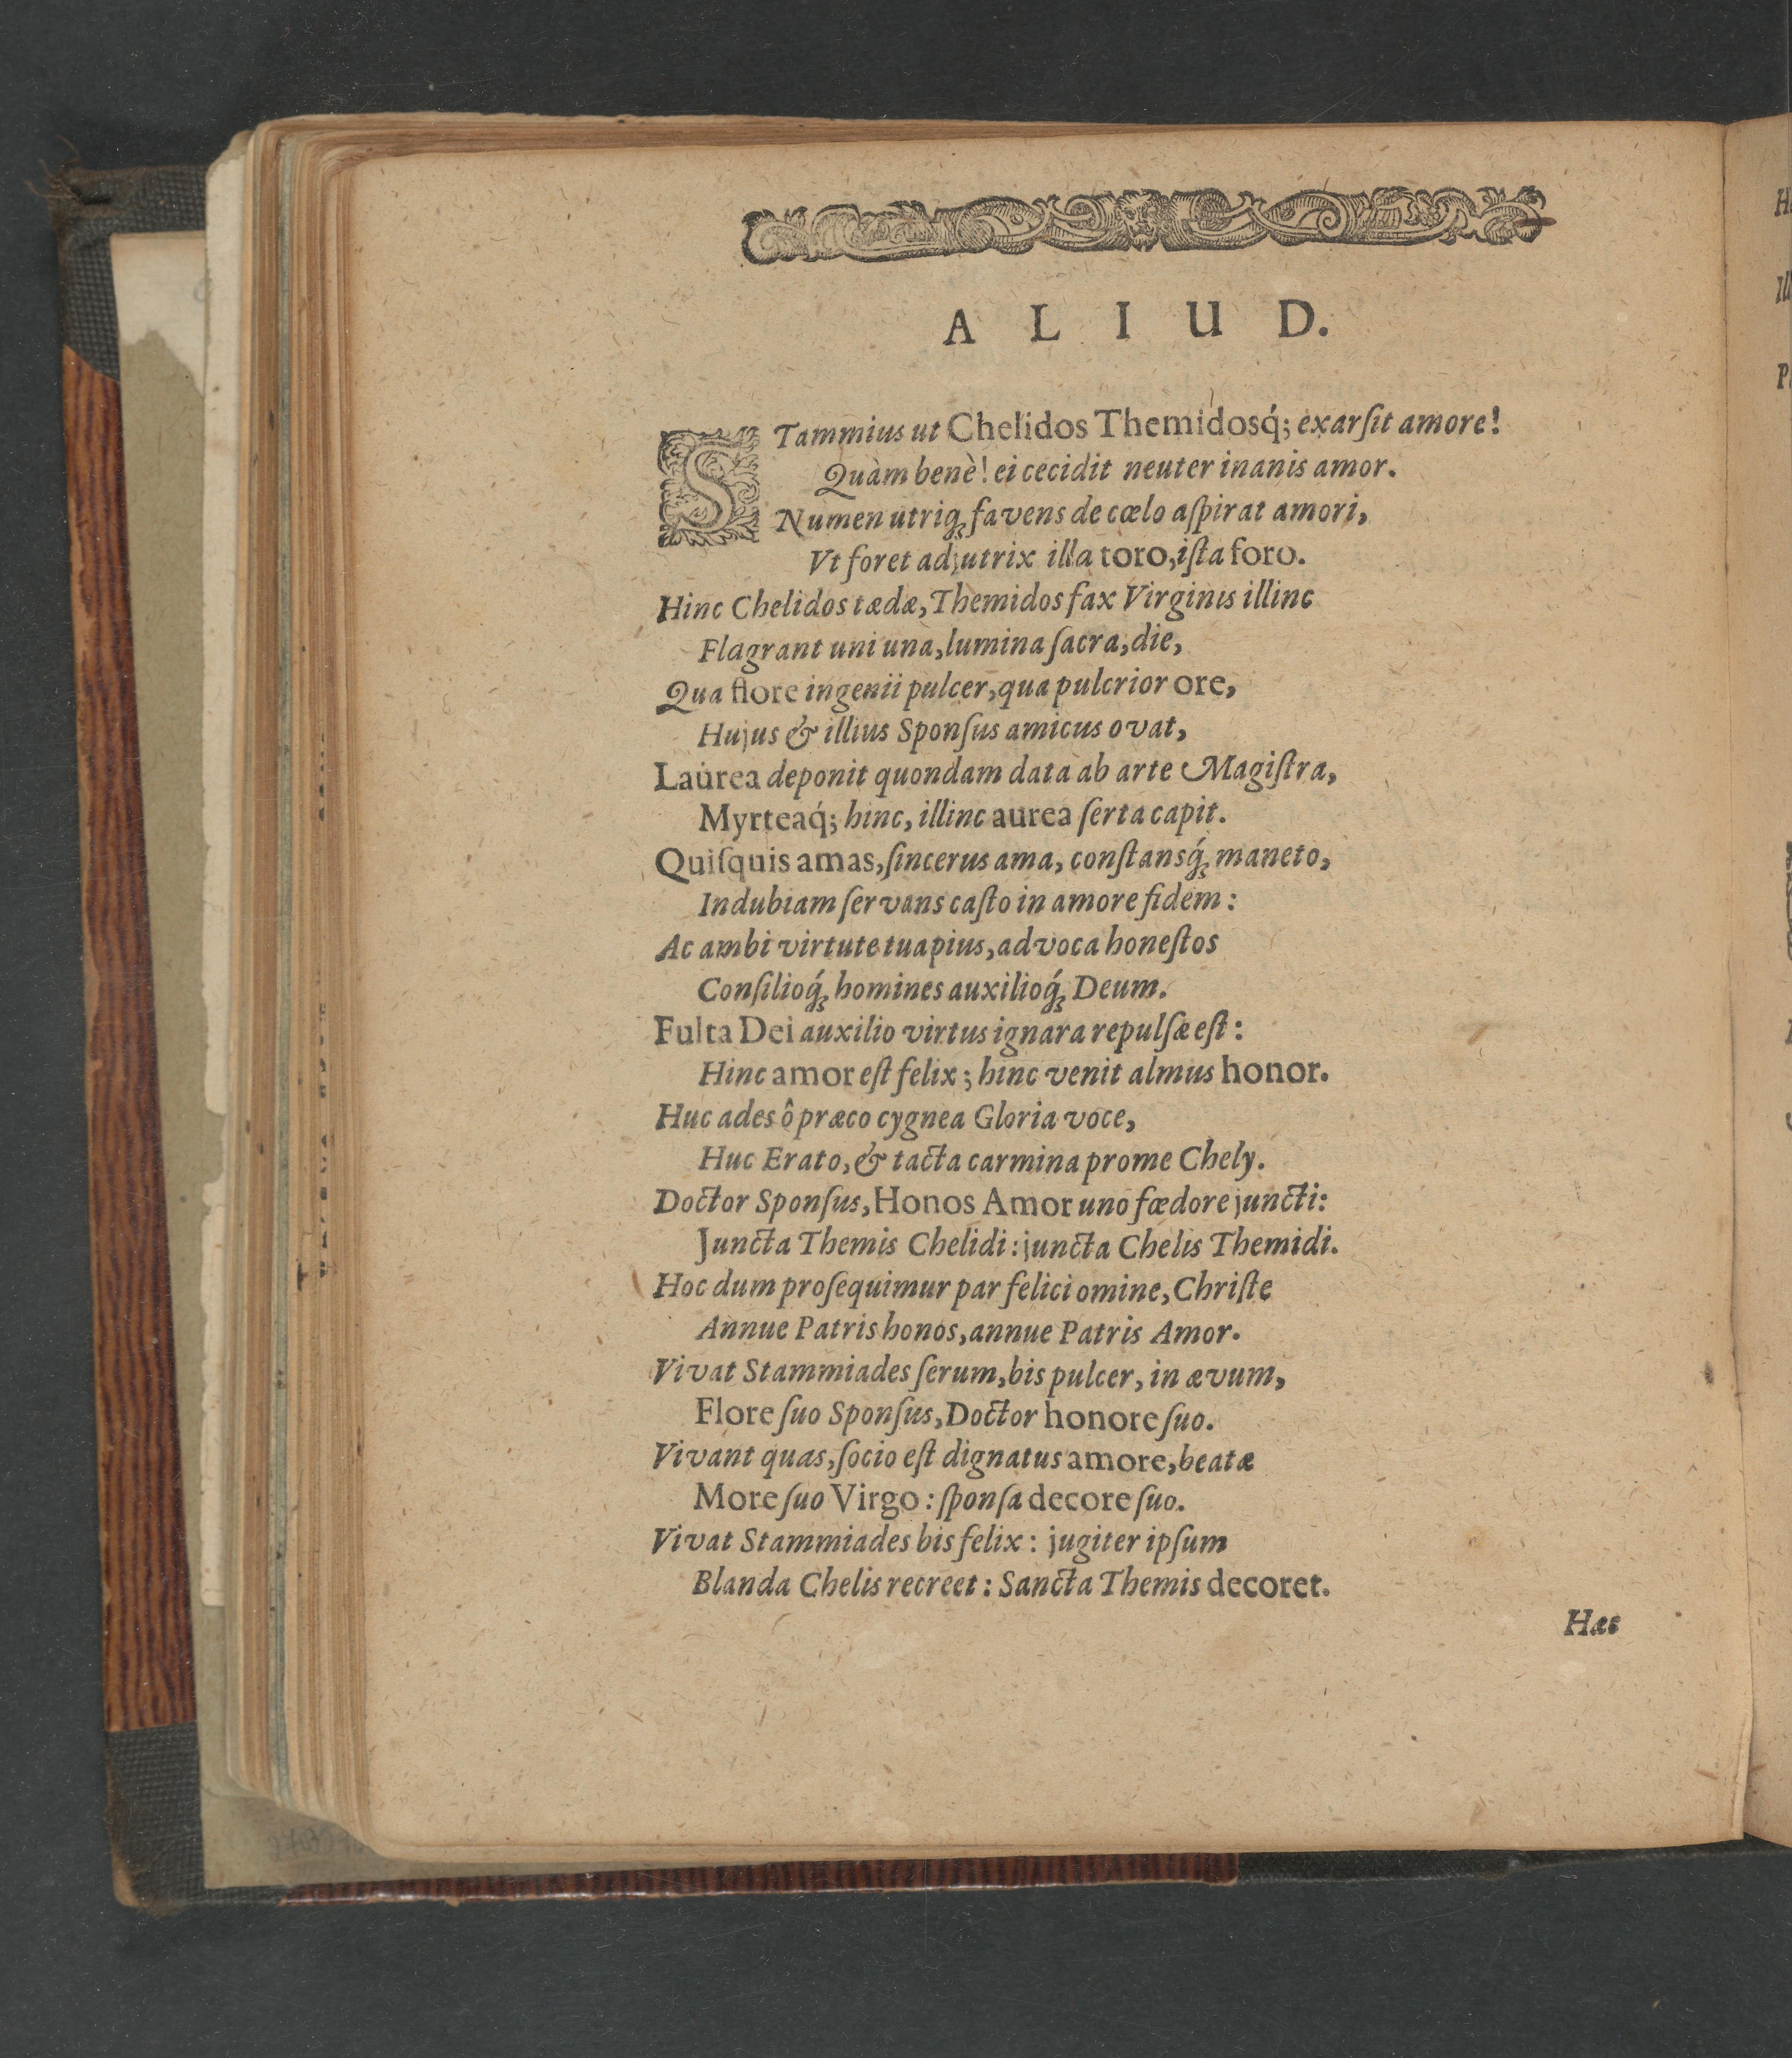 ALIUD.
STammius ut Chelidos Themidosq́; exarſit amore!
Quàm benè! ei cecidit neuter inanis amor.
Numen utriq; favens de cœlo aſpirat amori,
Vt foret adjutrix illa toro, iſta foro.
Hinc Chelidos tædæ, Themidos fax Virginis illinc
Flagrant uni una, lumina ſacra, die,
Qua flore ingenii pulcer, qua pulcrior ore,
Hujus & illius Sponſus amicus ovat,
Laurea deponit quondam data ab arte Magiſtra,
Myrteaq́; hinc, illinc aurea ſerta capit.
Quiſquis amas, ſincerus ama, conſtansq́; maneto,
Indubiam ſervans caſto in amore fidem:
Ac ambi virtute tua pius, advoca honeſtos
Conſilioq́; homines auxilioq́; Deum.
Fulta Dei auxilio virtus ignara repulſæ eſt:
Hinc amor eſt felix; hinc venit almus honor.
Huc ades ô præco cygnea Gloria voce,
Huc Erato, & tacta carmina prome Chely.
Doctor Sponſus, Honos Amor uno fœdore juncti:
Juncta Themis Chelidi: juncta Chelis Themidi.
Hoc dum proſequimur par felici omine, Chriſte
Annue Patris honos, annue Patris Amor.
Vivat Stammiades ſerum, bis pulcer, in ævum,
Flore ſuo Sponſus, Doctor honore ſuo.
Vivant quas, ſocio eſt dignatus amore, beatæ
More ſuo Virgo: ſponſa decore ſuo.
Vivat Stammiades bis felix: jugiter ipſum
Blanda Chelis recreet: Sancta Themis decoret.